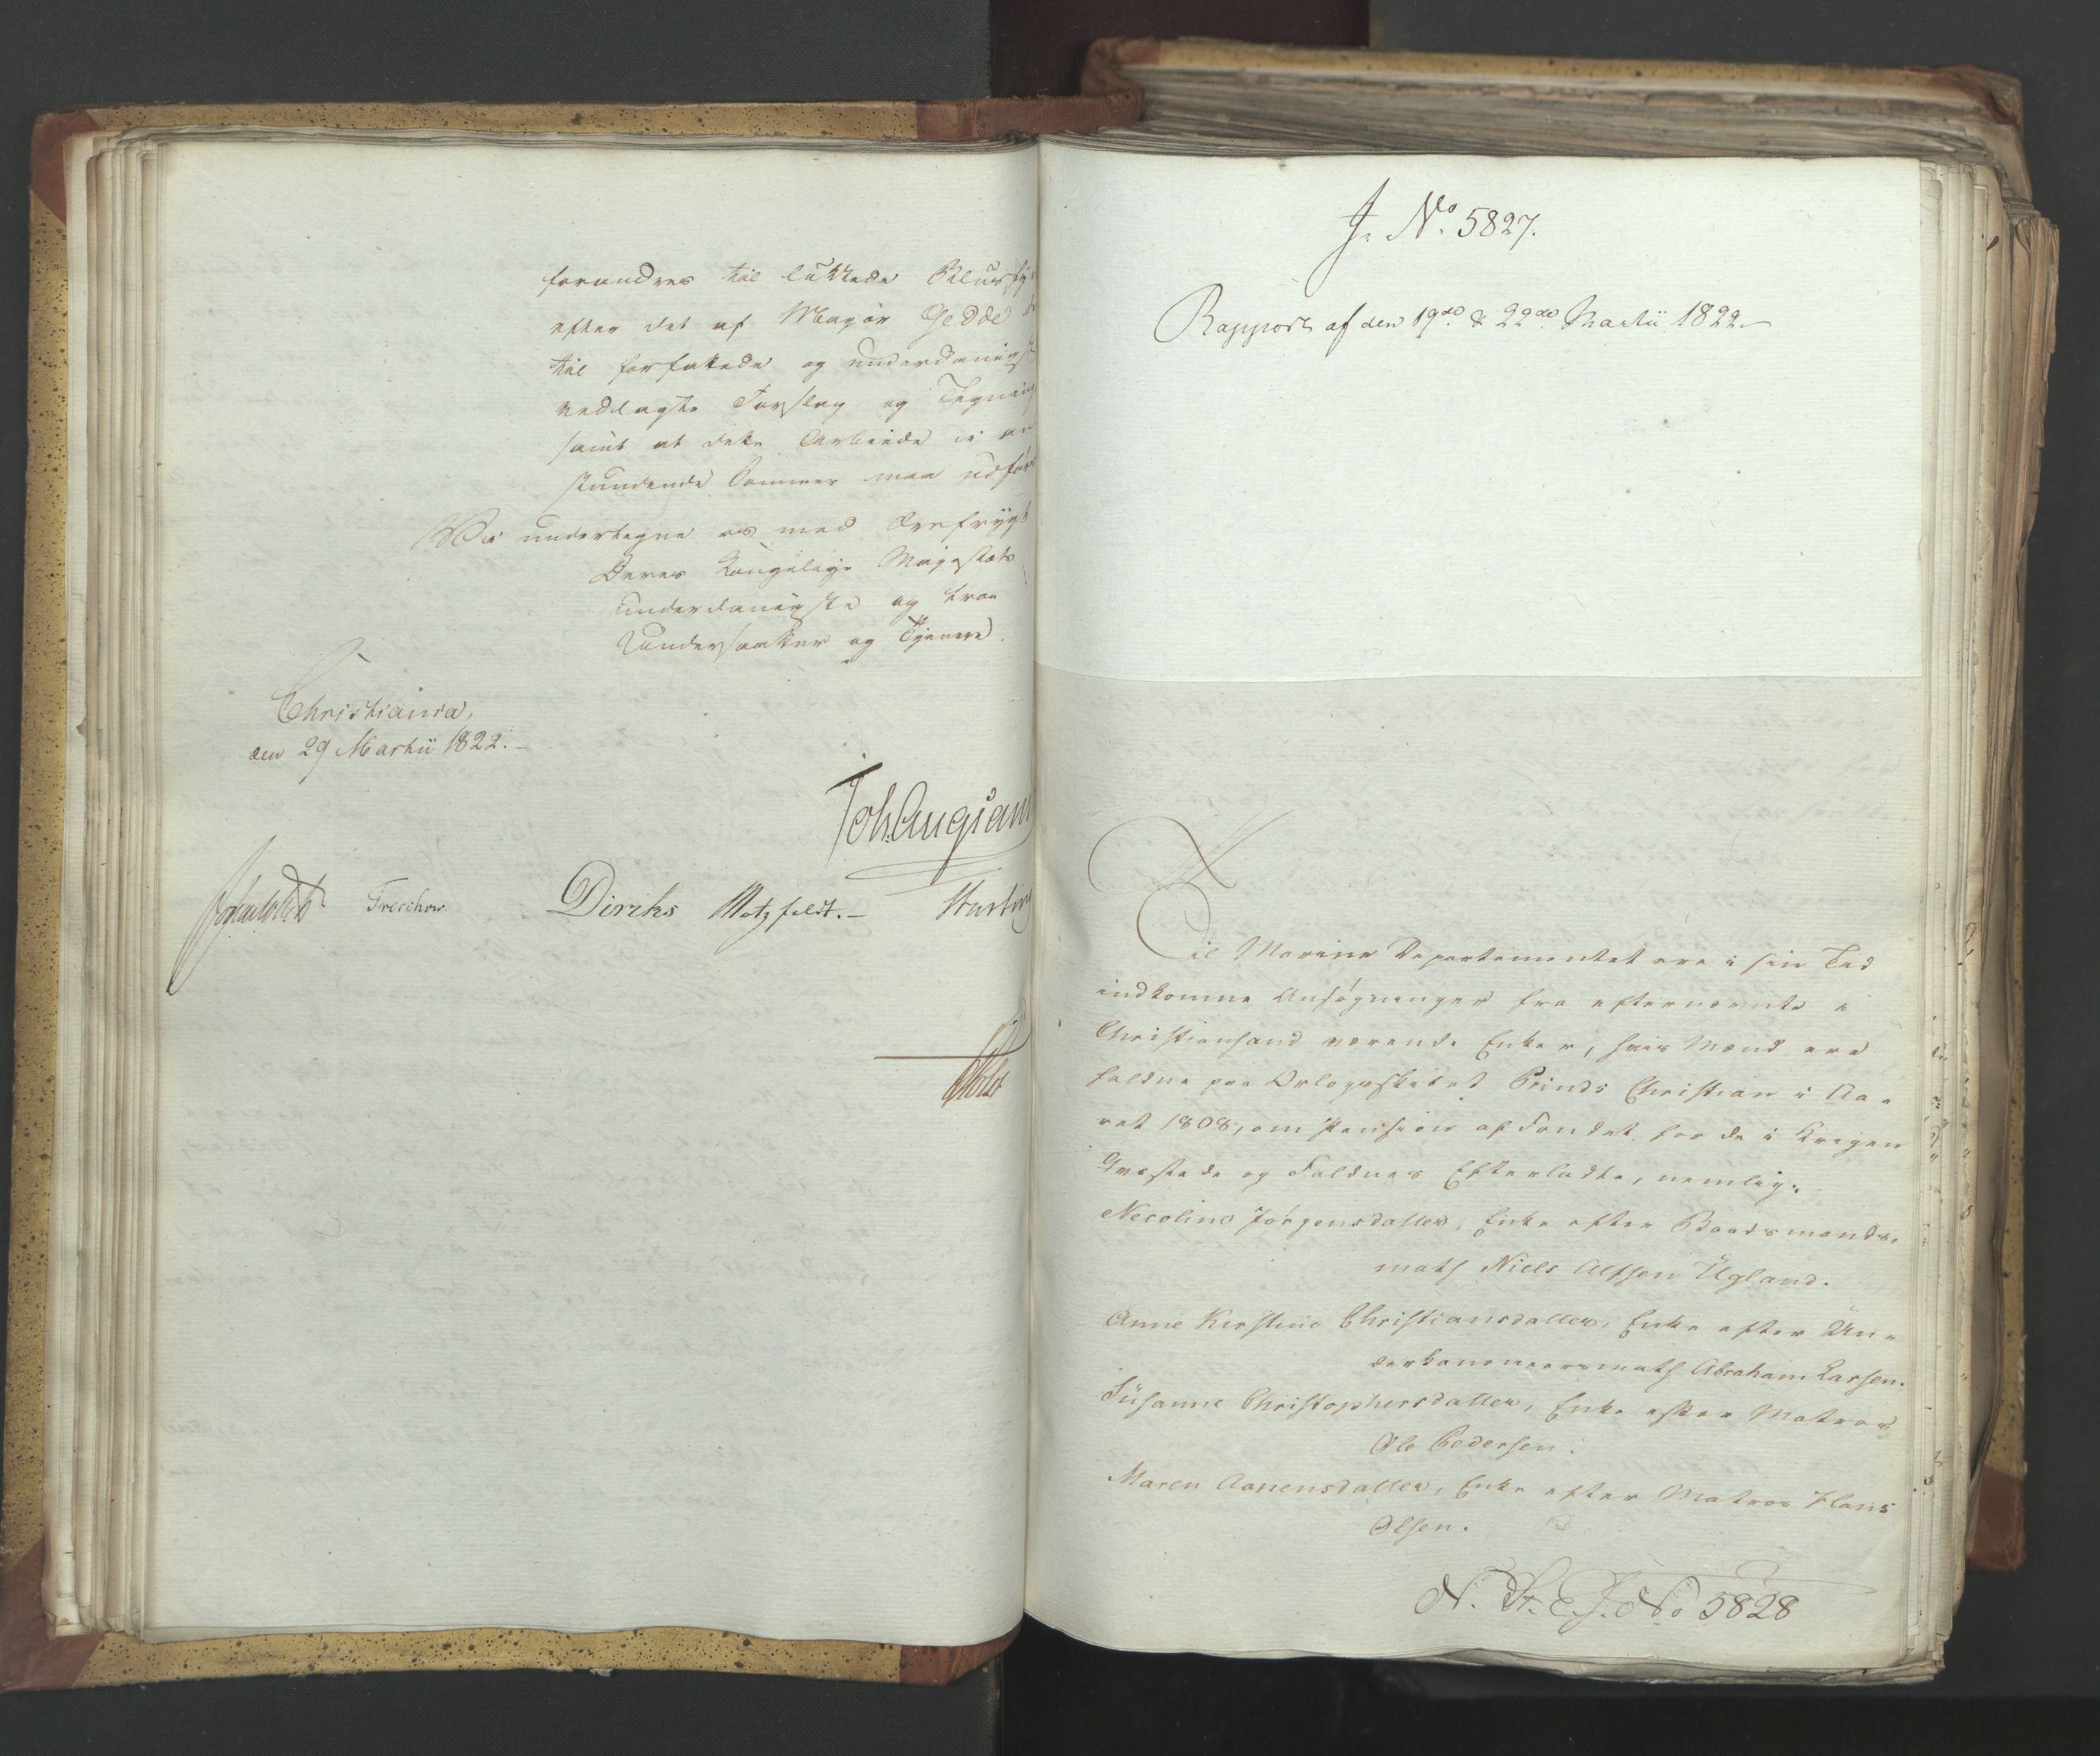 forandres til lukkede Blusfyr
efter det af Major Gedde der-
til forfattede og underdanigst
vedlagte Forslag og Tegning
samt at dette Arbeide i an-
stundende Sommer maa udføres
Vi undertegne os med Ærefrygt
Deres Kongelige Majestæts
underdanigste og troe
Undersaatter og Tjenere.
Christiania,
den 29 Martii 1822.-
Joh. Aug. Sand
Sommerhielm Treschow Diriks Motzfeldt.- Hertzberg
Holst
J. No. 5827.
Rapport af den 19de & 22de Martii 1822.
Til Marine Departementet ere i sin Tid
indkomne Ansøgninger fra efternævnte i
Christiansand værende Enker, hvis Mænd ere
faldne paa Orlogsskibet Prinds Christian i Aa-
ret 1808, om Pension af Fondet for de i Krigen
Qvæstede og Faldnes Efterladte, nemlig:
Nicoline Jørgensdatter, Enke efter Baadsmands-
math Niels Alfsen Ugland.
Anne Kirstine Christiansdatter, Enke efter Un-
derkanoneersmath Abraham Larsen.
Susanne Christophersdatter, Enke efter Matros
Ole Pedersen.
Maren Aanensdatter, Enke efter Matros Hans
Olsen.
N. St. E. J. No 5828